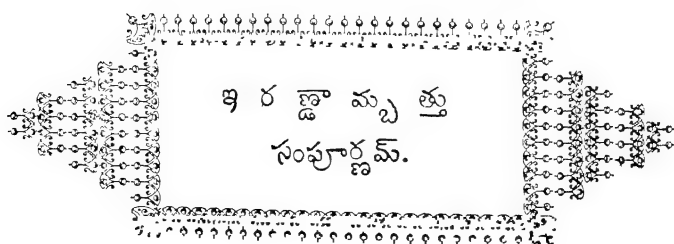 ఇ ర ణ్డా మ్ప త్తు
సంపూర్ణమ్.